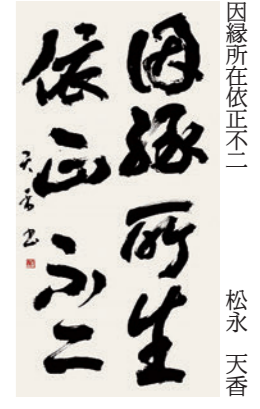 因縁所在依正不二
松永 天香
因縁所生
依正不二
天香書